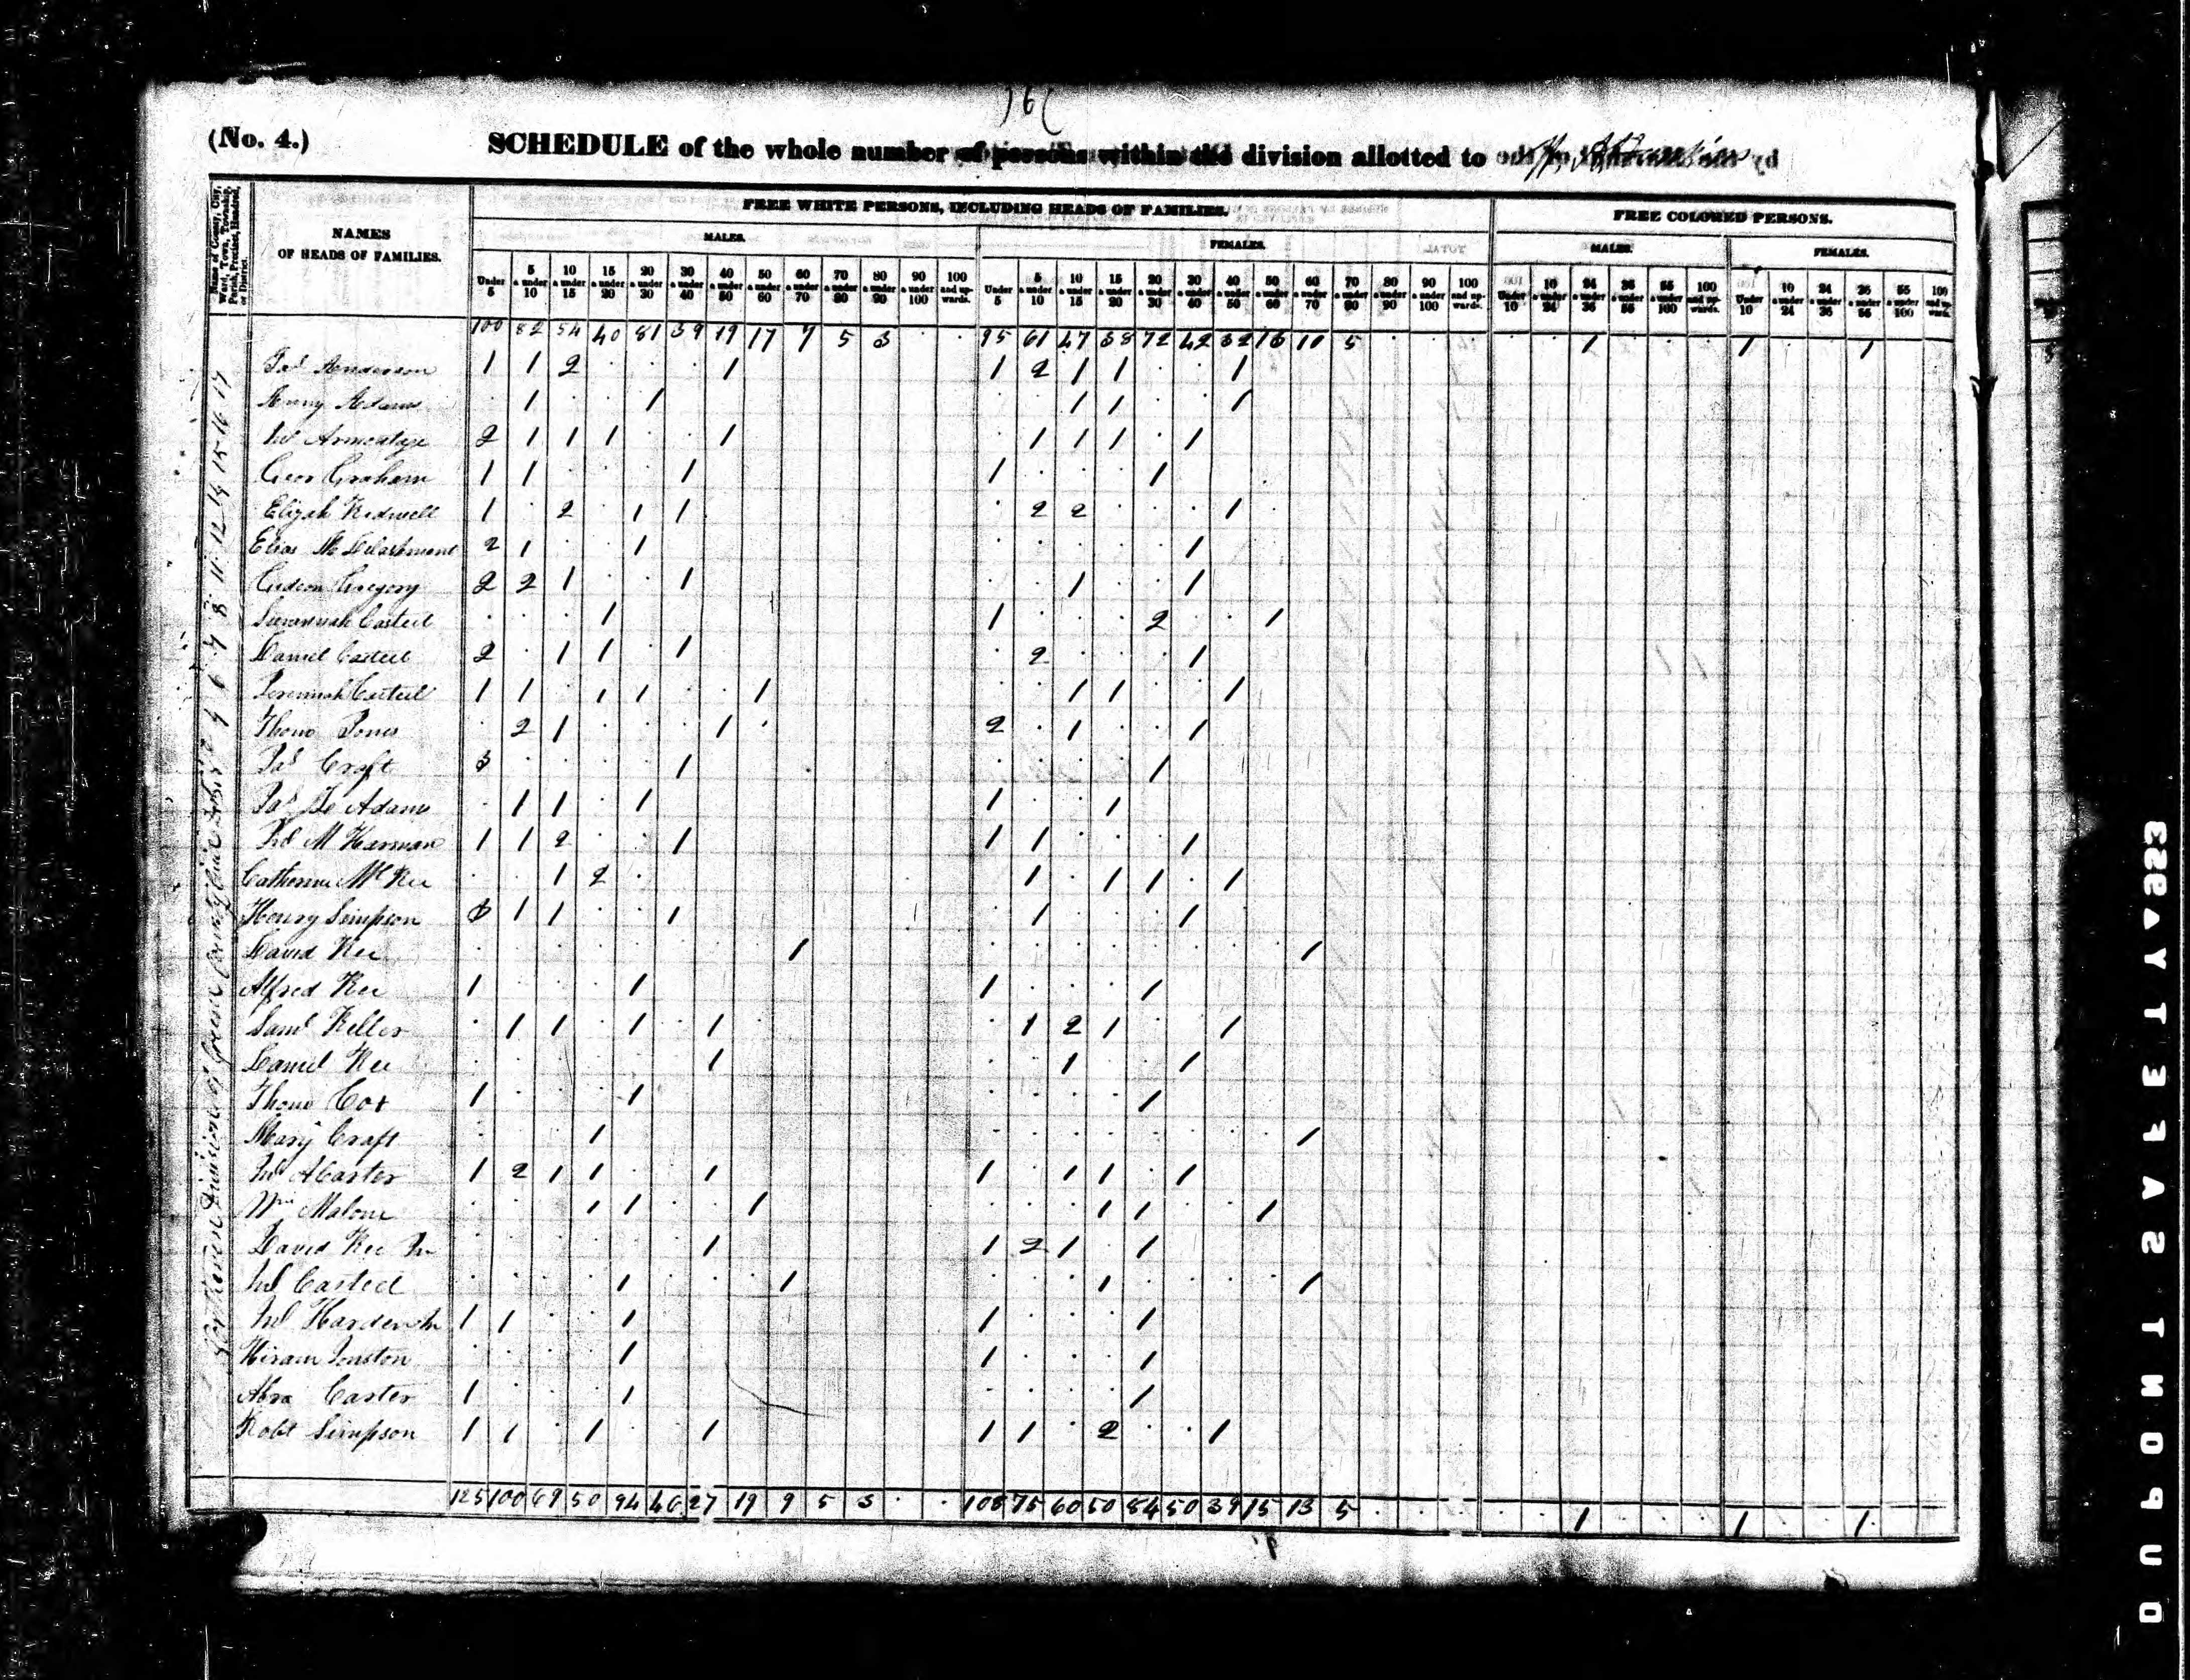 (No. 4.)
SCHEDULE of the whole number of persons within the division allotted to
Name of County, City, Ward, Town, Township, Parish, Precinct, Hundred, or District.
NAMES OF HEADS OF FAMILIES.
FREE WHITE PERSONS, INCLUDING HEADS OF FAMILIES.
FREE COLORED PERSONS.
MALES. FEMALES. MALES. FEMALES.
Under 5 5 & under 10 10 & under 15 15 & under 20 20 & under 30 30 & under 40 40 & under 50 50 & under 60 60 & under 70 70 & under 80 80 & under 90 90 & under 100 100 and upwards. Under 5 5 & under 10 10 & under 15 15 & under 20 20 & under 30 30 & under 40 40 & under 50 50 & under 60 60 & under 70 70 & under 80 80 & under 90 90 & under 100 100 and upwards. Under 10 10 & under 24 24 & under 36 36 & under 55 55 & under 100 100 and upwards. Under 10 10 & under 24 24 & under 36 36 & under 55 55 & under 100 100 and upwards.
100 82 54 40 81 39 19 17 7 5 3 95 61 47 38 72 42 32 13 10 5 1 1 1
Jas Anderson 1 1 2 1 1 2 1 1 1
Adams 1 1 1 1 1
Jno Armentage 2 1 1 1 1 1 1 1 1
Geor Graham 1 1 1 1 1
Elijah Kidwell 1 2 1 1 2 2 1
Elias 2 1 1 1
Gideon Gregory 2 2 1 1 1 1
Susannah Casteel 1 1 2 1
Daniel Casteel 2 1 1 1 2 1
Jeremiah Casteel 1 1 1 1 1 1 1 1
Thoms Jones 2 1 1 2 1 1
Jas Craft 3 1 1
Jas Adams 1 1 1 1 1
Jno M Harman 1 1 2 1 1 1 1
Catherine McKee 1 2 1 1 1 1
Henry Simpson 3 1 1 1 1 1
David Kee 1 1
Alfred Kee 1 1 1 1
Saml Keller 1 1 1 1 1 2 1 1
Daniel Kee 1 1 1
Thoms Cox 1 1 1
Mary Craft 1 1
Jno A Carter 1 2 1 1 1 1 1 1 1
Wm Malone 1 1 1 1 1 1
David Kee Jr 1 1 2 1 1
Jno Casteel 1 1 1 1
Jno Harden Jr 1 1 1 1 1
Hiram Jonston 1 1 1
Abra Carter 1 1 1
Robt Simpson 1 1 1 1 1 1 2 1
125 100 69 50 94 46 27 19 9 5 3 108 75 60 50 84 50 39 15 13 5 1 1 1